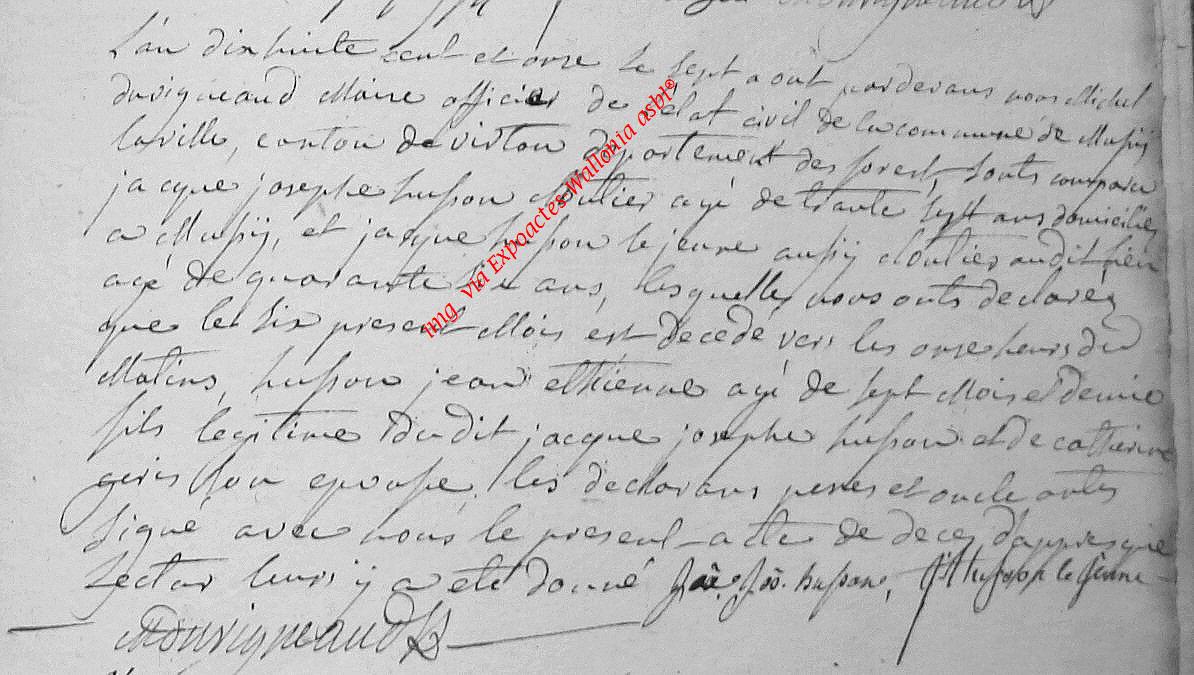 L'an dix huite cent et onze le sept aout pardevans nous Michel
duvigneaud Maire officier de l'état civil de la commune de Mussy
laville, canton de virton departement des forest, sonts comparu
jacque josephe husson cloutier agé de trante sept ans domiciliez
a Mussy, et jacque husson le jeune aussy cloutier audit lieu
agé de quarante six ans, lesquelles nous onts declarez
que le six present Mois est decedé vers les onse heurs du
Matins, husson jean ethienne agé de sept Mois et demie
fils legitime dudit jacque josephe husson et de catherine
geris son epouse, les declarans peres et oncle onts
signé avec nous le present acte de deces d'appres que
lectur leurs y a eté donné Jac. Jos. husson, JH husson le jeune
MDuvigneaud
img via Expoactes Wallonia asbl®